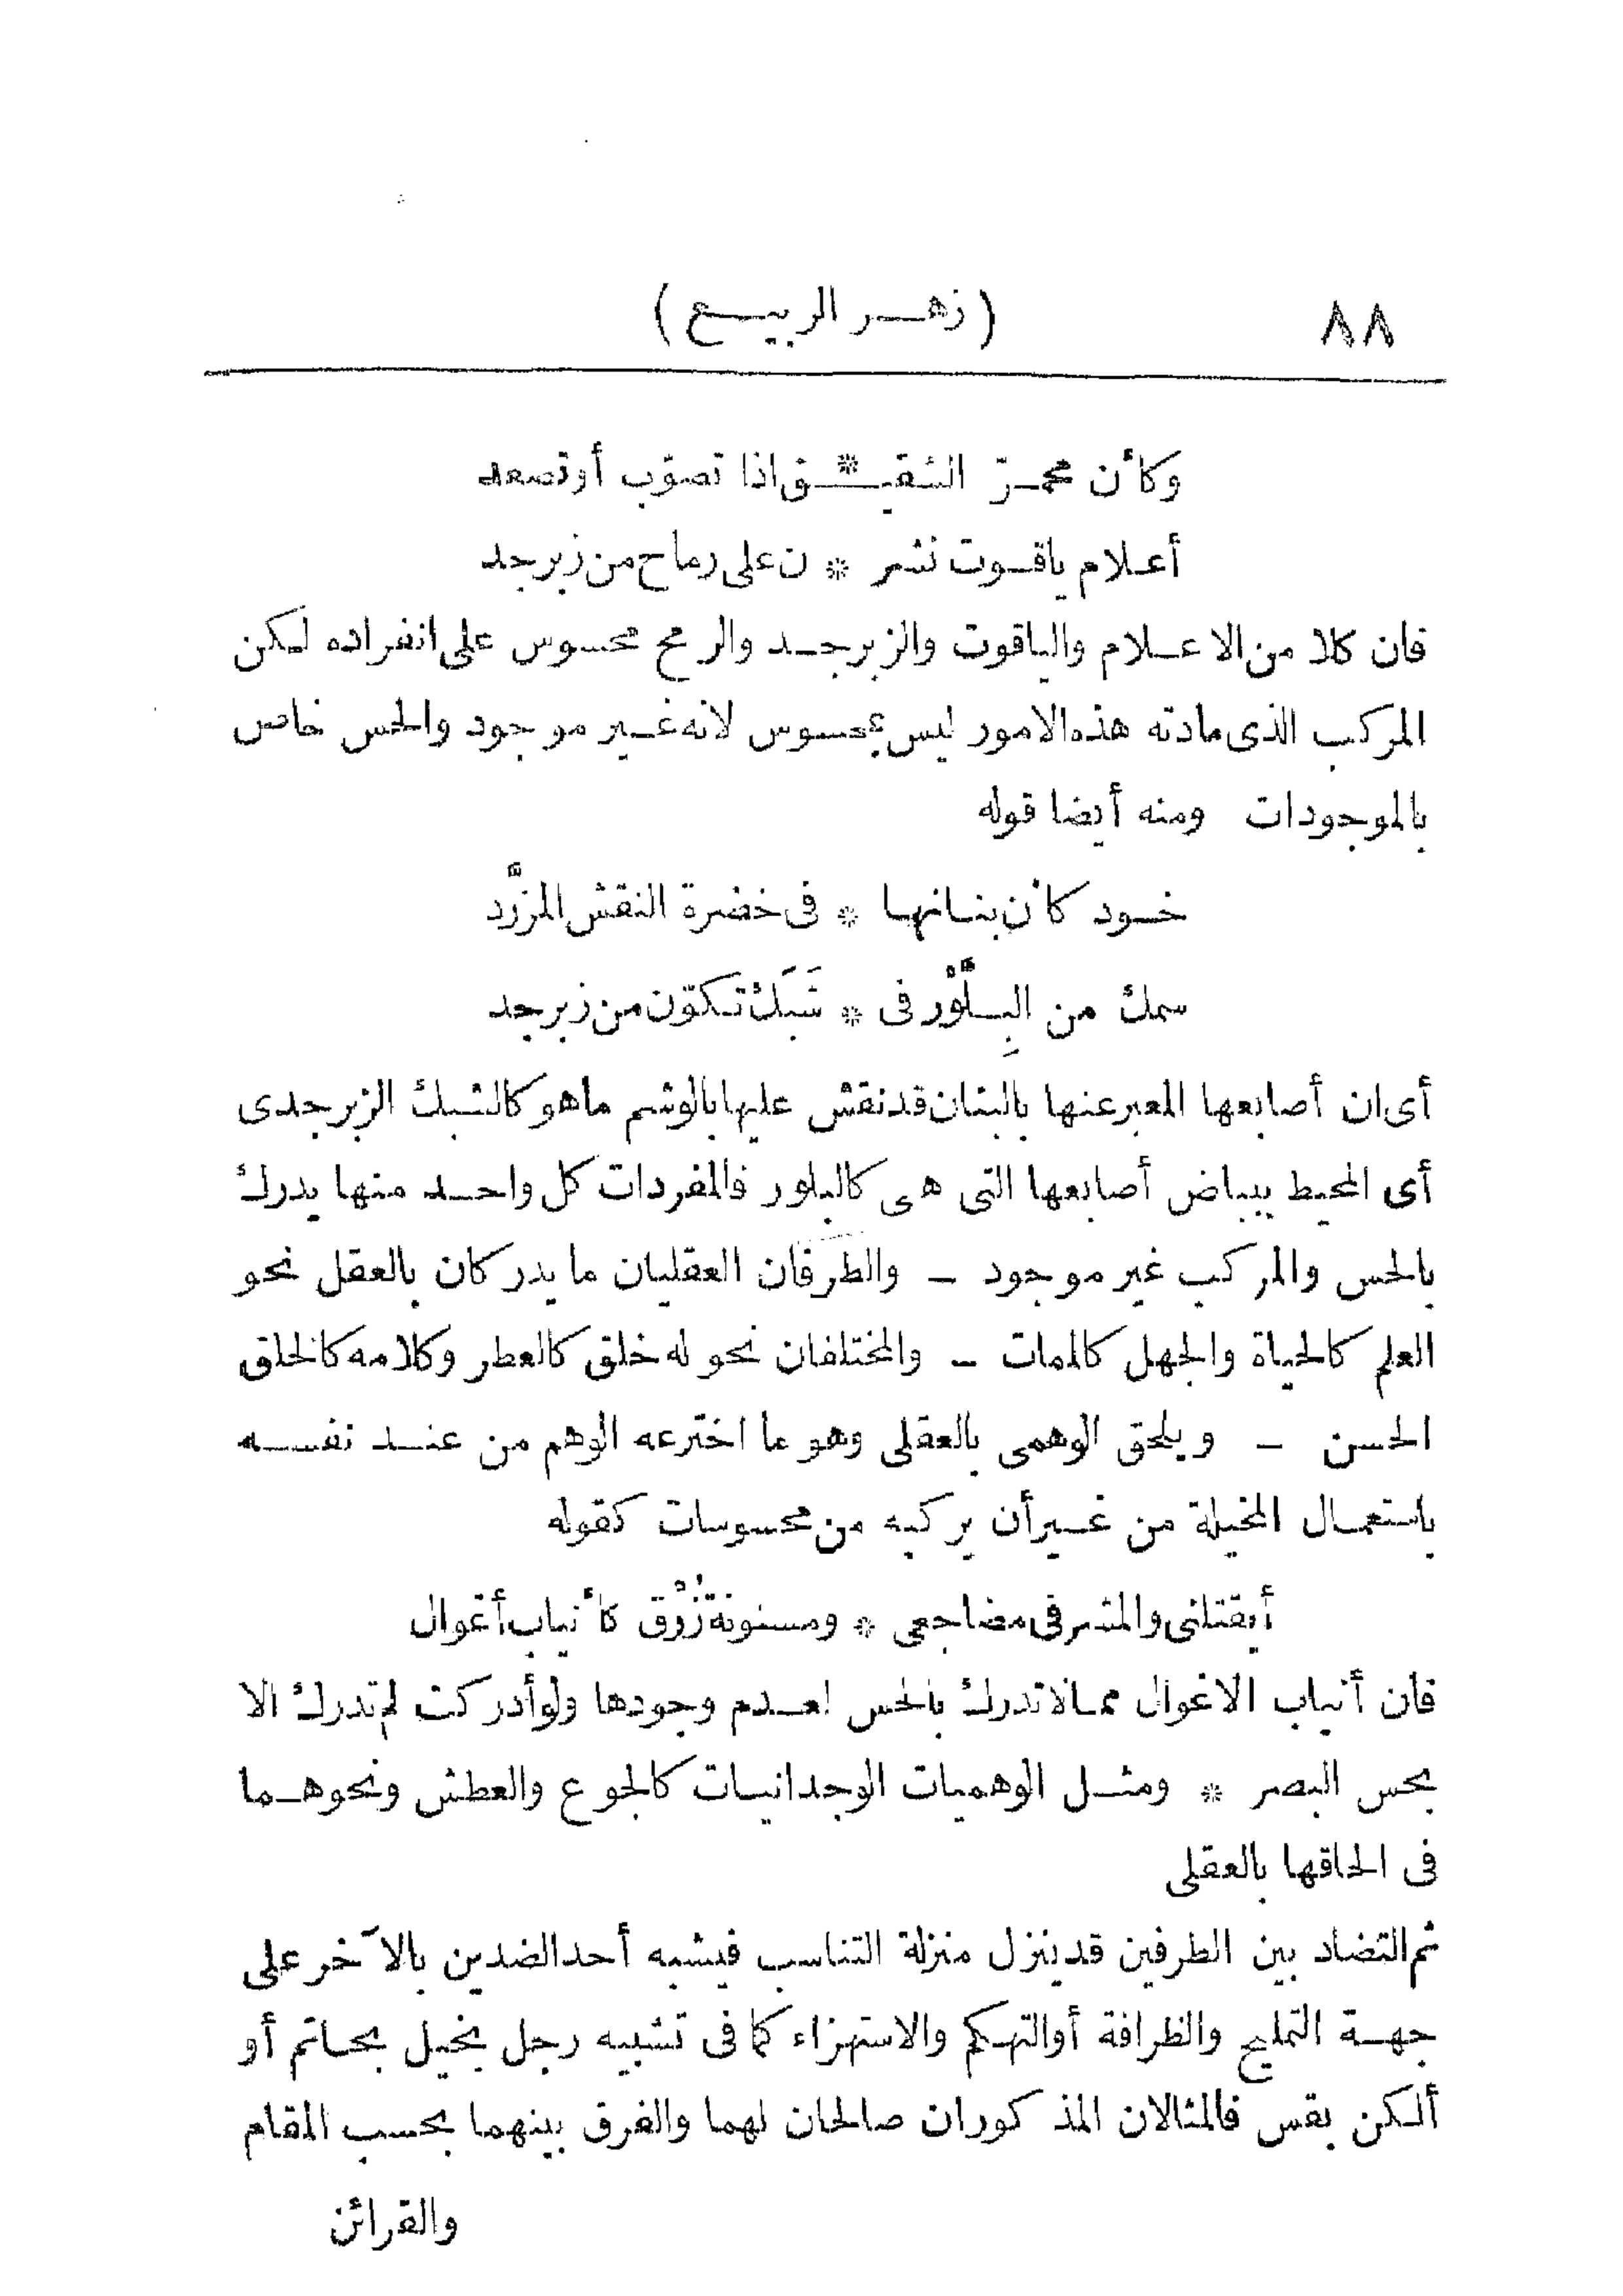 ٨٨
(زهر الربيع)
وكأن محمرّ الشقيـ * ـق اذا تصوّب أو تصعد
أعلام ياقوت نشر * ن على رماح من زبرجد
فان كلا من الاعلام والياقوت والزبرجد والرمح محسوس على انفراده لكن
المركب الذى مادته هذه الامور ليس بمحسوس لانه غير موجود والحس خاص
بالموجودات ومنه أيضا قوله
خود كأن بنانها * فى خضرة النقش المزرَّد
سمك من البِلَّوْر فى * شَبَك تكوّن من زبرجد
أى ان أصابعها المعبر عنها بالبنان قد نقش عليها بالوشم ما هو كالشبك الزبرجدى
أى المحيط ببياض أصابعها التى هى كالبلور فالمفردات كل واحد منها يدرك
بالحس والمركب غير موجود – والطرفان العقليان ما يدركان بالعقل نحو
العلم كالحياة والجهل كالممات – والمختلفان نحو له خلق كالعطر وكلامه كالخلق
الحسن – ويلحق الوهمى بالعقلى وهو ما اخترعه الوهم من عند نفسه
باستعمال المخيلة من غير أن يركبه من محسوسات كقوله
أيقتلنى والمشرفى مضاجعى * ومسنونة زُرْق كأنياب أغوال
فان أنياب الاغوال مما لا تدرك بالحس لعدم وجودها ولو أدركت لم تدرك الا
بحس البصر * ومثل الوهميات الوجدانيات كالجوع والعطش ونحوهما
فى الحاقها بالعقلى
ثم التضاد بين الطرفين قد ينزل منزلة التناسب فيشبه أحد الضدين بالآخر على
جهة التمليح والظرافة أو التهكم والاستهزاء كما فى تشبيه رجل بخيل بحاتم أو
ألكن بقس فالمثالان المذكوران صالحان لهما والفرق بينهما بحسب المقام
والقرائن